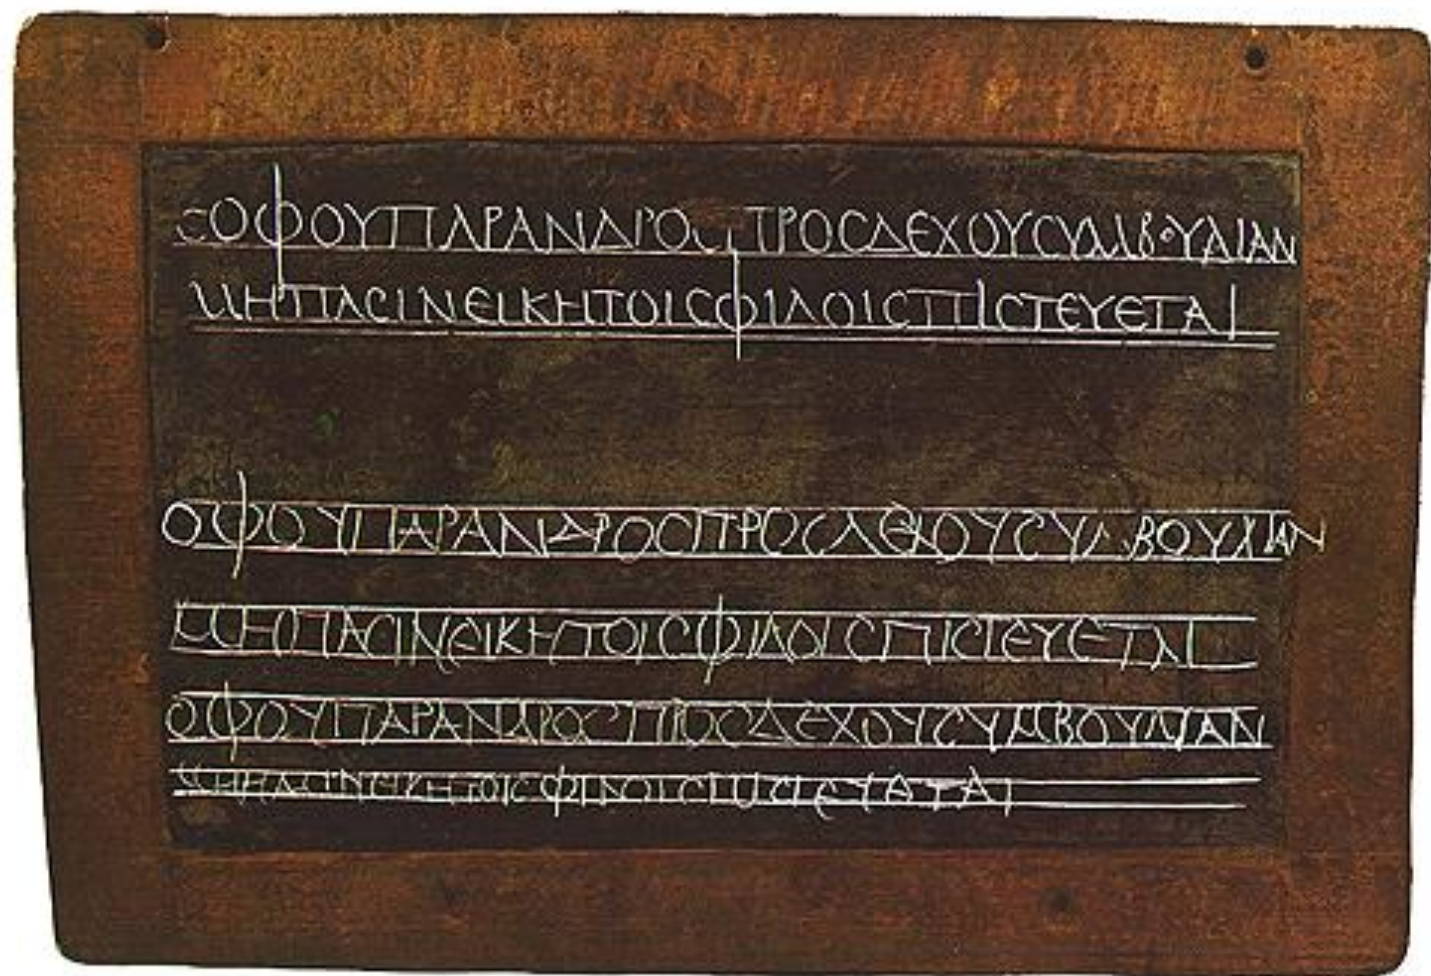 ΣΟΦΟΥΠΑΡΑΝΔΡΟΣΠΡΟΣΔΕΧΟΥΣΥΜΒΟΥΛΙΑΝ
ΜΗΠΑΣΙΝΕΙΚΗΤΟΙΣΦΙΛΟΙΣΠΙΣΤΕΥΕΤΑΙ
ΟΦΟΥΠΑΡΑΝΔΡΟΣΠΡΟΣΔΕΧΟΥΣΥΜΒΟΥΛΙΑΝ
ΜΗΠΑΣΙΝΕΙΚΗΤΟΙΣΦΙΛΟΙΣΠΙΣΤΕΥΕΤΑΙ
ΟΦΟΥΠΑΡΑΝΔΡΟΣΠΡΟΣΔΕΧΟΥΣΥΜΒΟΥΛΙΑΝ